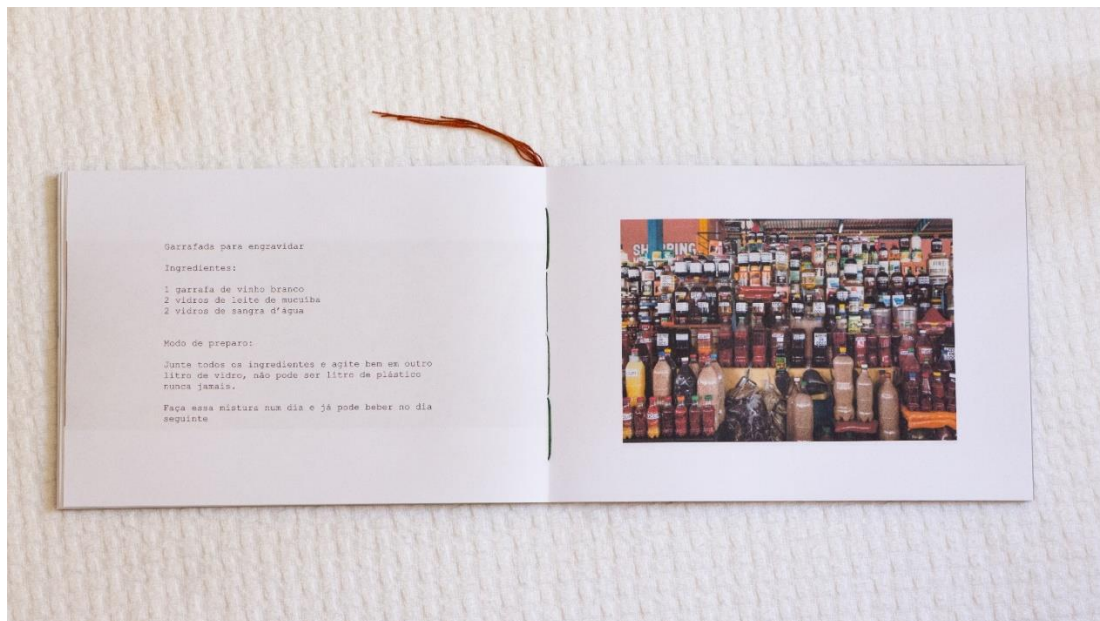 Garrafada para engravidar
Ingredientes:
1 garrafa de vinho branco
2 vidros de leite de mucuíba
2 vidros de sangra d'água
Modo de preparo:
Junte todos os ingredientes e agite bem em outro
litro de vidro, não pode ser litro de plástico
nunca jamais.
Faça essa mistura num dia e já pode beber no dia
seguinte